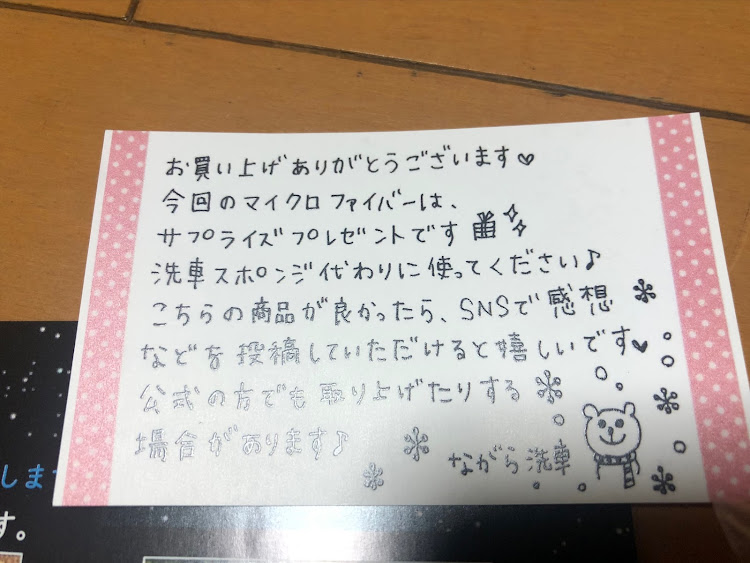 お買い上げありがとうございます♥
今回のマイクロファイバーは、
サプライズプレゼントです
洗車スポンジ代わりに使ってください♪
こちらの商品が良かったら、SNSで感想
などを投稿していただけると嬉しいです♥
公式の方でも取り上げたりする
場合があります♪
ながら洗車
しま
す。